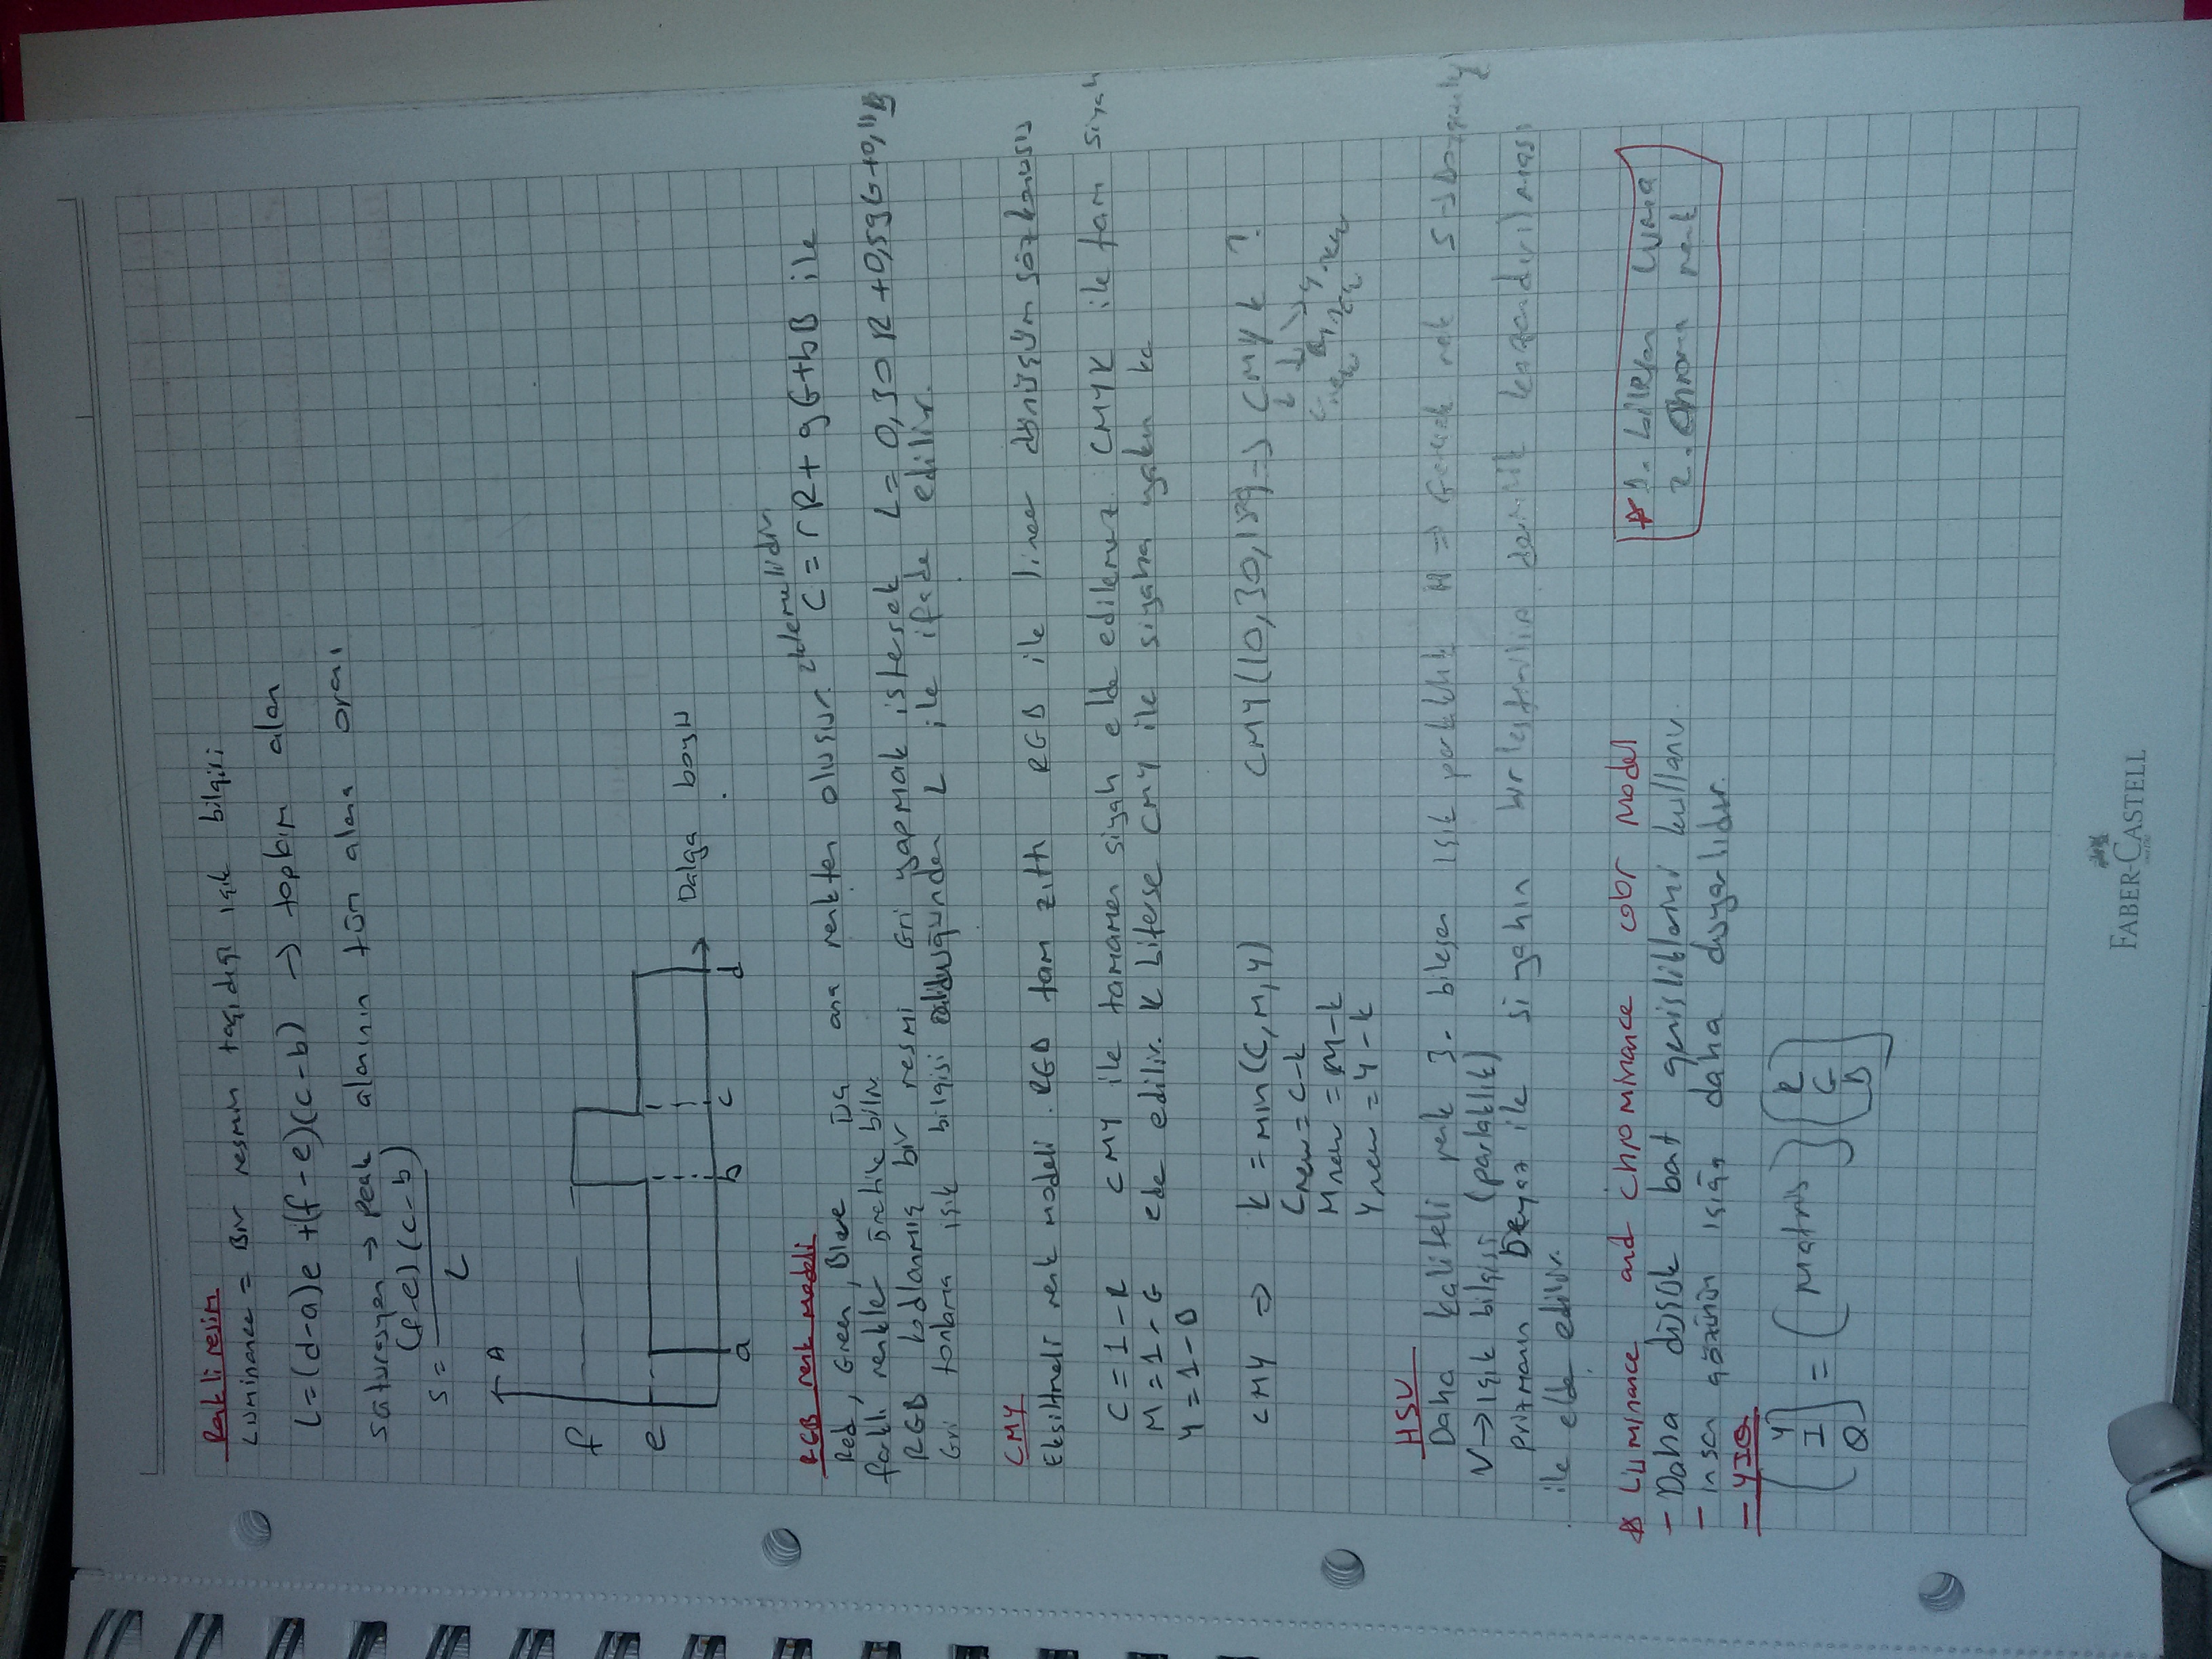 Renkli resim
Luminance = Bir resmin taşıdığı ışık bilgisi
L=(d-a)e +(f-e)(c-b) → toplam alan
Saturasyon → Peak alanının tüm alana oranı
S = (f-e)(c-b) / L
A
f
e
a b c d
Dalga boyu
RGB renk modeli
Red, Green, Blue üç ana renkten oluşur. eklemelidir C = rR + gG+bB ile
farklı renkler üretilebilir
RGB kodlanmış bir resmi Gri yapmak istersek L= 0,30 R +0,59G+0,11B
Gri tonlama ışık bilgisi olduğundan L ile ifade edilir.
CMY
Eksiltmeli renk modeli. RGB tam zıttı RGB ile lineer dönüşüm söz konusu
C = 1-R CMY ile tamamen siyah elde edilemez. CMYK ile tam siyah
M = 1-G elde edilir. K biterse CMY ile siyaha yakın
Y = 1-B
CMY ⇒ k = min(C,M,Y) CMY(10,30, → CMYk ?
Cnew = C-k
Mnew = M-k
Ynew = Y-k
Cnew Mnew Ynew
HSV
Daha kaliteli renk 3. bileşen ışık parlaklık H ⇒ Gerçek renk S →
V → ışık bilgisi (parlaklık)
Prizmanın Beyaz ile siyahın birleştirilip derinlik kazandırılması
ile elde edilir.
Luminance and chrominance color model
- Daha düşük bant genişliklerini kullanır.
- insan gözünün ışığa daha duyarlıdır.
1. bileşen luma
2. Chroma renk
- YIQ
(Y I Q) = (Matris) (R G B)
FABER-CASTELL
since 1761